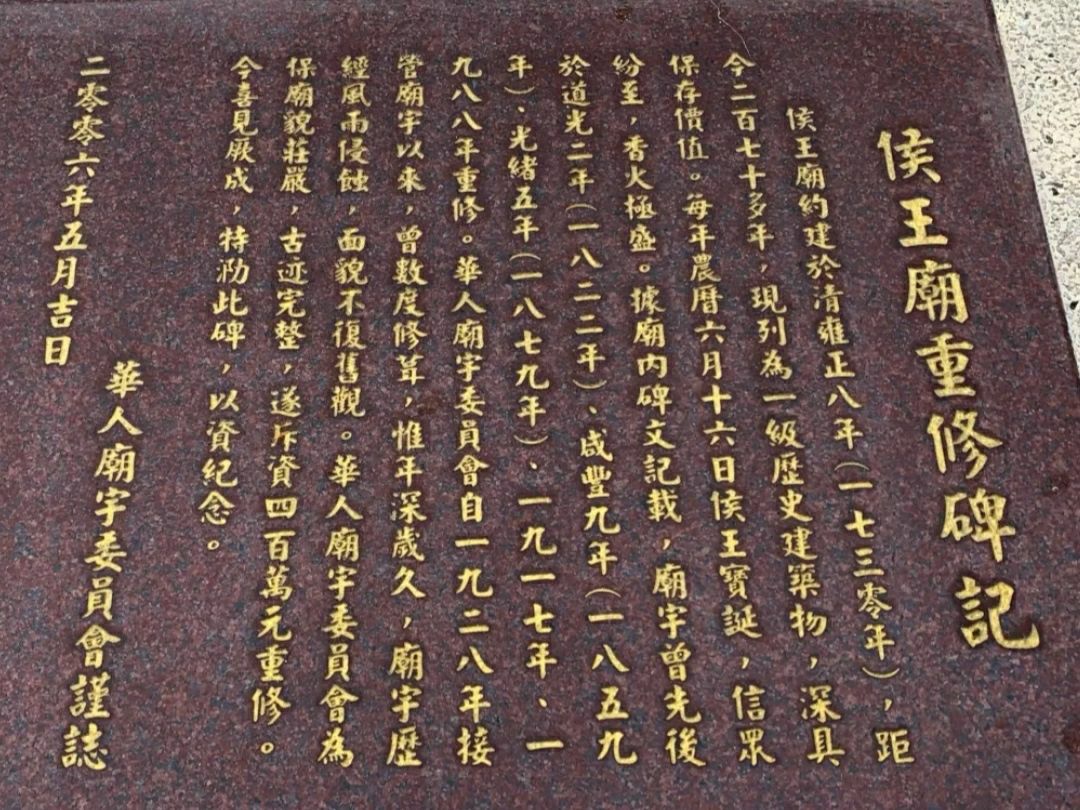 侯王廟重修碑記
侯王廟約建於清雍正八年（一七三零年），距
今二百七十多年，現列為一級歷史建築物，深具
保存價值。每年農曆六月十六日侯王寶誕，信眾
紛至，香火極盛。據廟內碑文記載，廟宇曾先後
於道光二年（一八二二年）、咸豐九年（一八五九
年）、光緒五年（一八七九年）、一九一七年、一
九八八年重修。華人廟宇委員會自一九二八年接
管廟宇以來，曾數度修葺，惟年深歲久，廟宇歷
經風雨侵蝕，面貌不復舊觀。華人廟宇委員會為
保廟貌莊嚴，古迹完整，遂斥資四百萬元重修。
今喜見厥成，特泐此碑，以資紀念。
華人廟宇委員會謹誌
二零零六年五月吉日